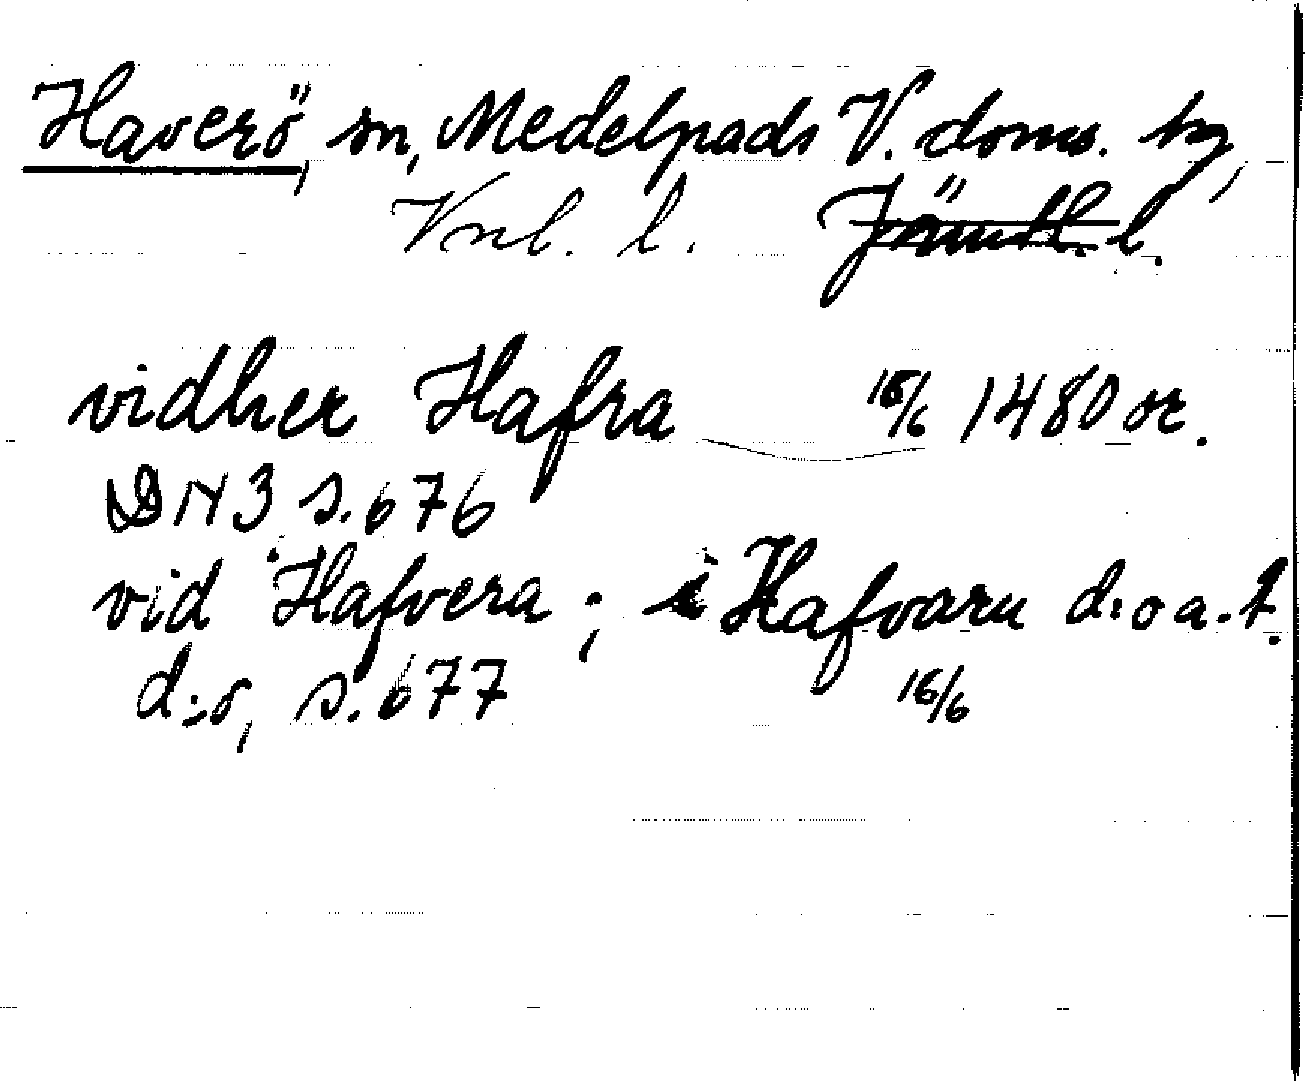 Haverö, sn, Medelpads V. doms. tg,
Vnl. l. Jämtl. l.
vidher Hafra 16/6 1480 or.
DN 3 s. 676
vid Hafvera ; i Hafvaru d:o a. t.
d:o, s. 677 16/6